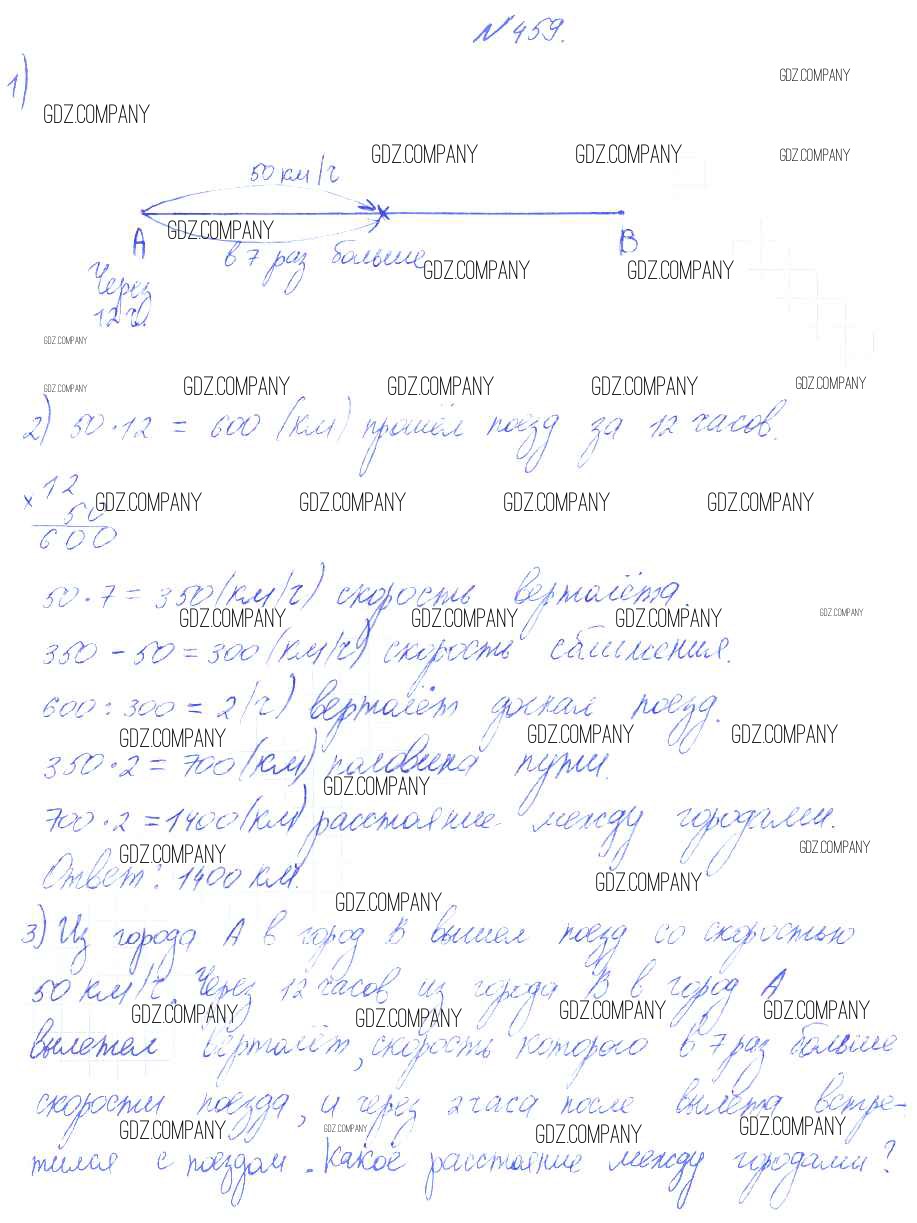 № 459.
1)
GDZ.COMPANY
GDZ.COMPANY
GDZ.COMPANY GDZ.COMPANY GDZ.COMPANY
50 км/ч
A GDZ.COMPANY B
в 7 раз больше
GDZ.COMPANY GDZ.COMPANY
Через
12 ч.
GDZ.COMPANY
GDZ.COMPANY GDZ.COMPANY GDZ.COMPANY GDZ.COMPANY GDZ.COMPANY
2) 50 · 12 = 600 (км) прошёл поезд за 12 часов.
× 12
50
GDZ.COMPANY GDZ.COMPANY GDZ.COMPANY GDZ.COMPANY
600
50 · 7 = 350 (км/ч) скорость вертолёта.
GDZ.COMPANY GDZ.COMPANY GDZ.COMPANY GDZ.COMPANY
350 - 50 = 300 (км/ч) скорость сближения.
600 : 300 = 2 (ч) вертолёт догнал поезд.
GDZ.COMPANY GDZ.COMPANY GDZ.COMPANY
350 · 2 = 700 (км) половина пути.
GDZ.COMPANY
700 · 2 = 1400 (км) расстояние между городами.
GDZ.COMPANY GDZ.COMPANY
Ответ: 1400 км.
GDZ.COMPANY
GDZ.COMPANY
3) Из города А в город В вышел поезд со скоростью
50 км/ч. Через 12 часов из города В в город А
GDZ.COMPANY GDZ.COMPANY GDZ.COMPANY GDZ.COMPANY
вылетел вертолёт, скорость которого в 7 раз больше
скорости поезда, и через 2 часа после вылета встре-
GDZ.COMPANY GDZ.COMPANY GDZ.COMPANY GDZ.COMPANY
тился с поездом. Какое расстояние между городами?